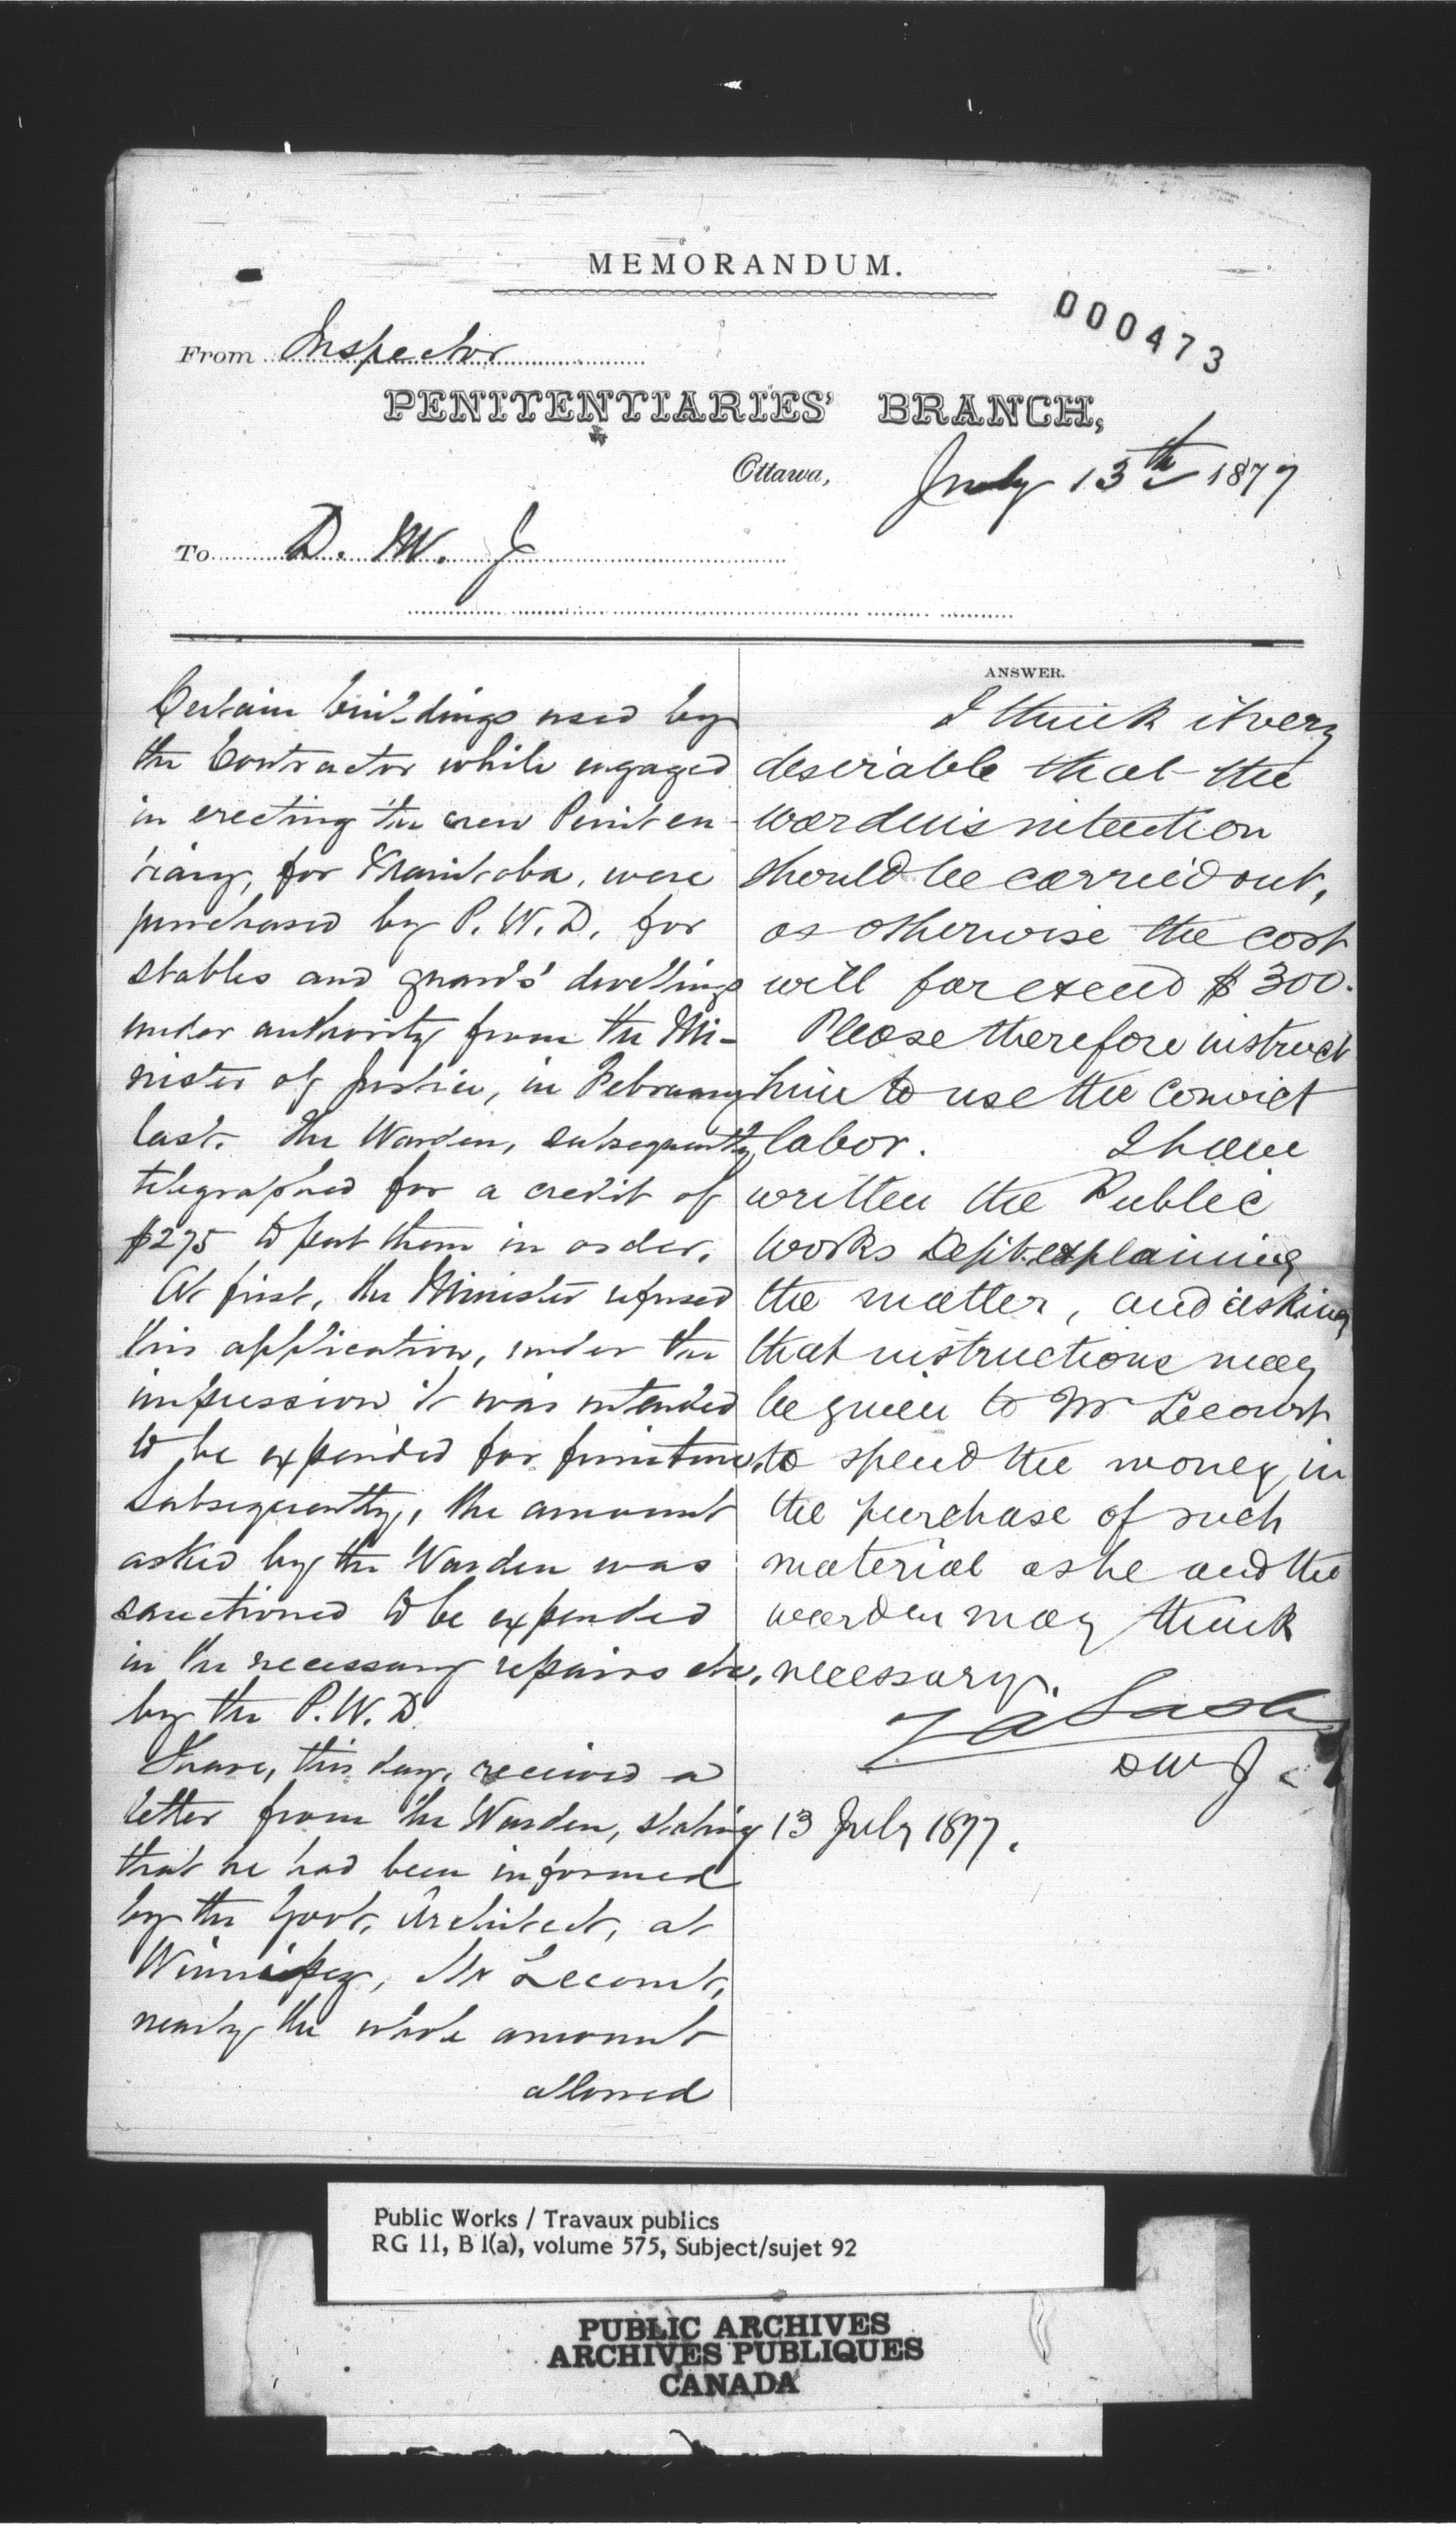 MEMORANDUM.
000473
From Inspector
PENITENTIARIES' BRANCH,
Ottawa, July 13th 1877
To D. M. J
Certain buildings used by
the Contractor while engaged
in erecting the new Peniten-
tiary, for Manitoba, were
purchased by P. W. D. for
stables and guards' dwellings
under authority from the Mi-
nister of Justice, in February
last. The Warden, subsequently,
telegraphed for a credit of
$275 to put them in order.
At first, the Minister refused
this application, under the
impression it was intended
to be expended for furniture.
Subsequently, the amount
asked by the Warden was
sanctioned to be expended
in the necessary repairs etc,
by the P. W. D
I have, this day, received a
letter from the Warden, stating
that he had been informed
by the Govt. Architect, at
Winnipeg, Mr Lecourt,
nearly the whole amount
allowed
ANSWER.
I think it very
desirable that the
warden's intention
should be carried out,
as otherwise the cost
will far exceed $300.
Please therefore instruct
him to use the convict
labor. I have
written the Public
Works Dept. explaining
the matter, and asking
that instructions may
be given to Mr Lecourt
to spend the money in
the purchase of such
material as he and the
warden may think
necessary.
Z A Lash
DMJ
13 July 1877.
Public Works / Travaux publics
RG 11, B 1(a), volume 575, Subject/sujet 92
PUBLIC ARCHIVES
ARCHIVES PUBLIQUES
CANADA